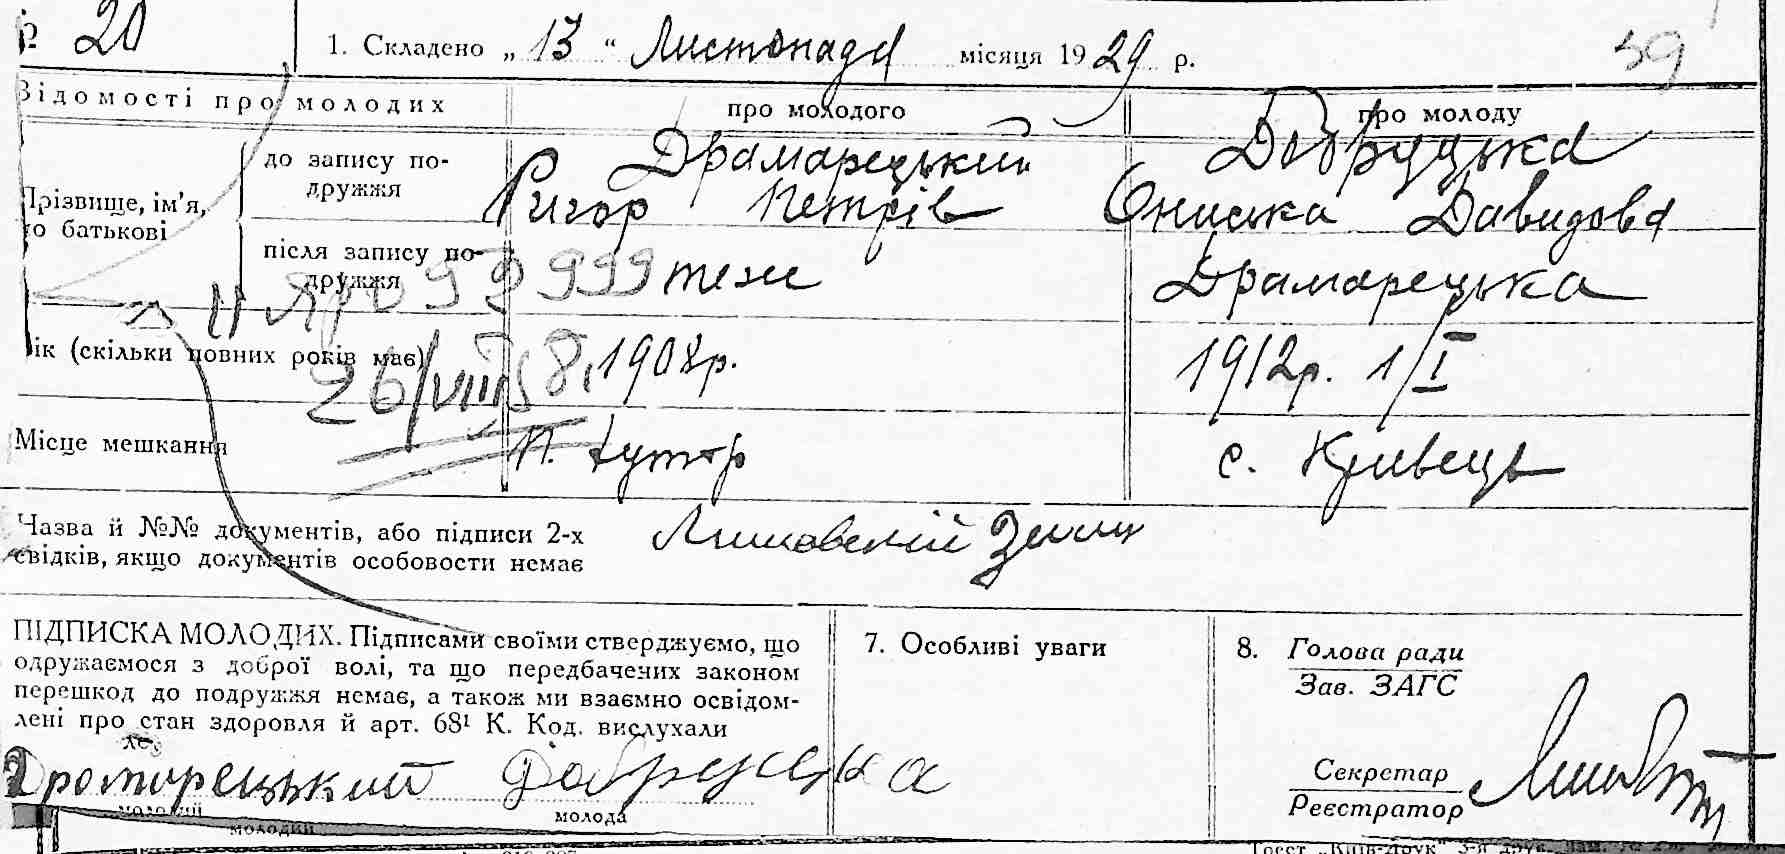 № 20
1. Складено „ 13 “ Листопада місяця 1929 р.
59
Відомості про молодих
про молодого
про молоду
Прізвище, ім’я,
по батькові
до запису по-
дружжя
Драмарецький
Ригор Петрів
Добруцька
Ониська Давидова
після запису по-
дружжя
теж
Драмарецька
II ЯР 099999
Вік (скільки повних років має)
26/VIII 58.
1908р.
1912р. 1/I
Місце мешкання
П. Хутор
с. Кривець
Назва й №№ документів, або підписи 2-х
свідків, якщо документів особовости немає
ПІДПИСКА МОЛОДИХ. Підписами своїми стверджуємо, що
одружаємося з доброї волі, та що передбачених законом
перешкод до подружжя немає, а також ми взаємно освідом-
лені про стан здоровля й арт. 68¹ К. Код. вислухали
Дромарецький Добруцька
молодий
молода
7. Особливі уваги
8. Голова ради
Зав. ЗАГС
Секретар
Реєстратор
молодий
Трест „Київ-Друк“ 3-я друк.